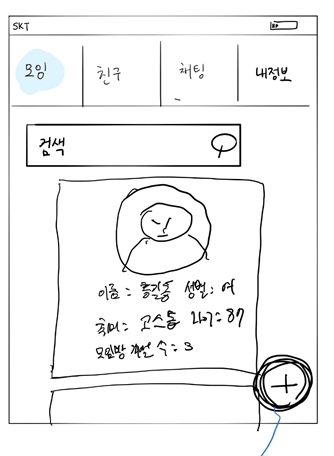 SKT
모임 친구 채팅 내정보
검색
이름 = 홍길동 성별: 여
취미= 고스톱 나이= 87
모임방 개설 수= 3